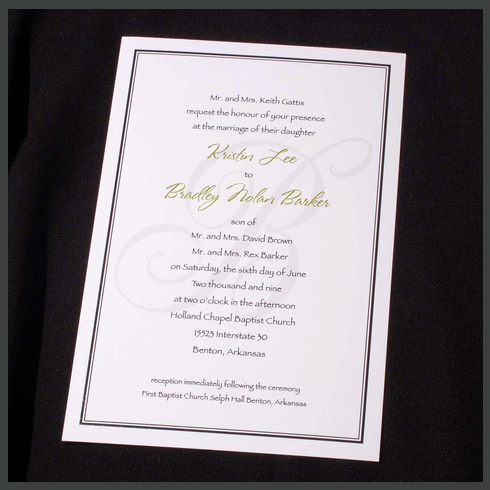 Mr. and Mrs. Keith Gattis
request the honour of your presence
at the marriage of their daughter
Kristin Lee
to
Bradley Nolan Barker
son of
Mr. and Mrs. David Brown
Mr. and Mrs. Rex Barker
on Saturday, the sixth day of June
Two thousand and nine
at two o'clock in the afternoon
Holland Chapel Baptist Church
15523 Interstate 30
Benton, Arkansas
reception immediately following the ceremony
First Baptist Church Selph Hall Benton, Arkansas
B